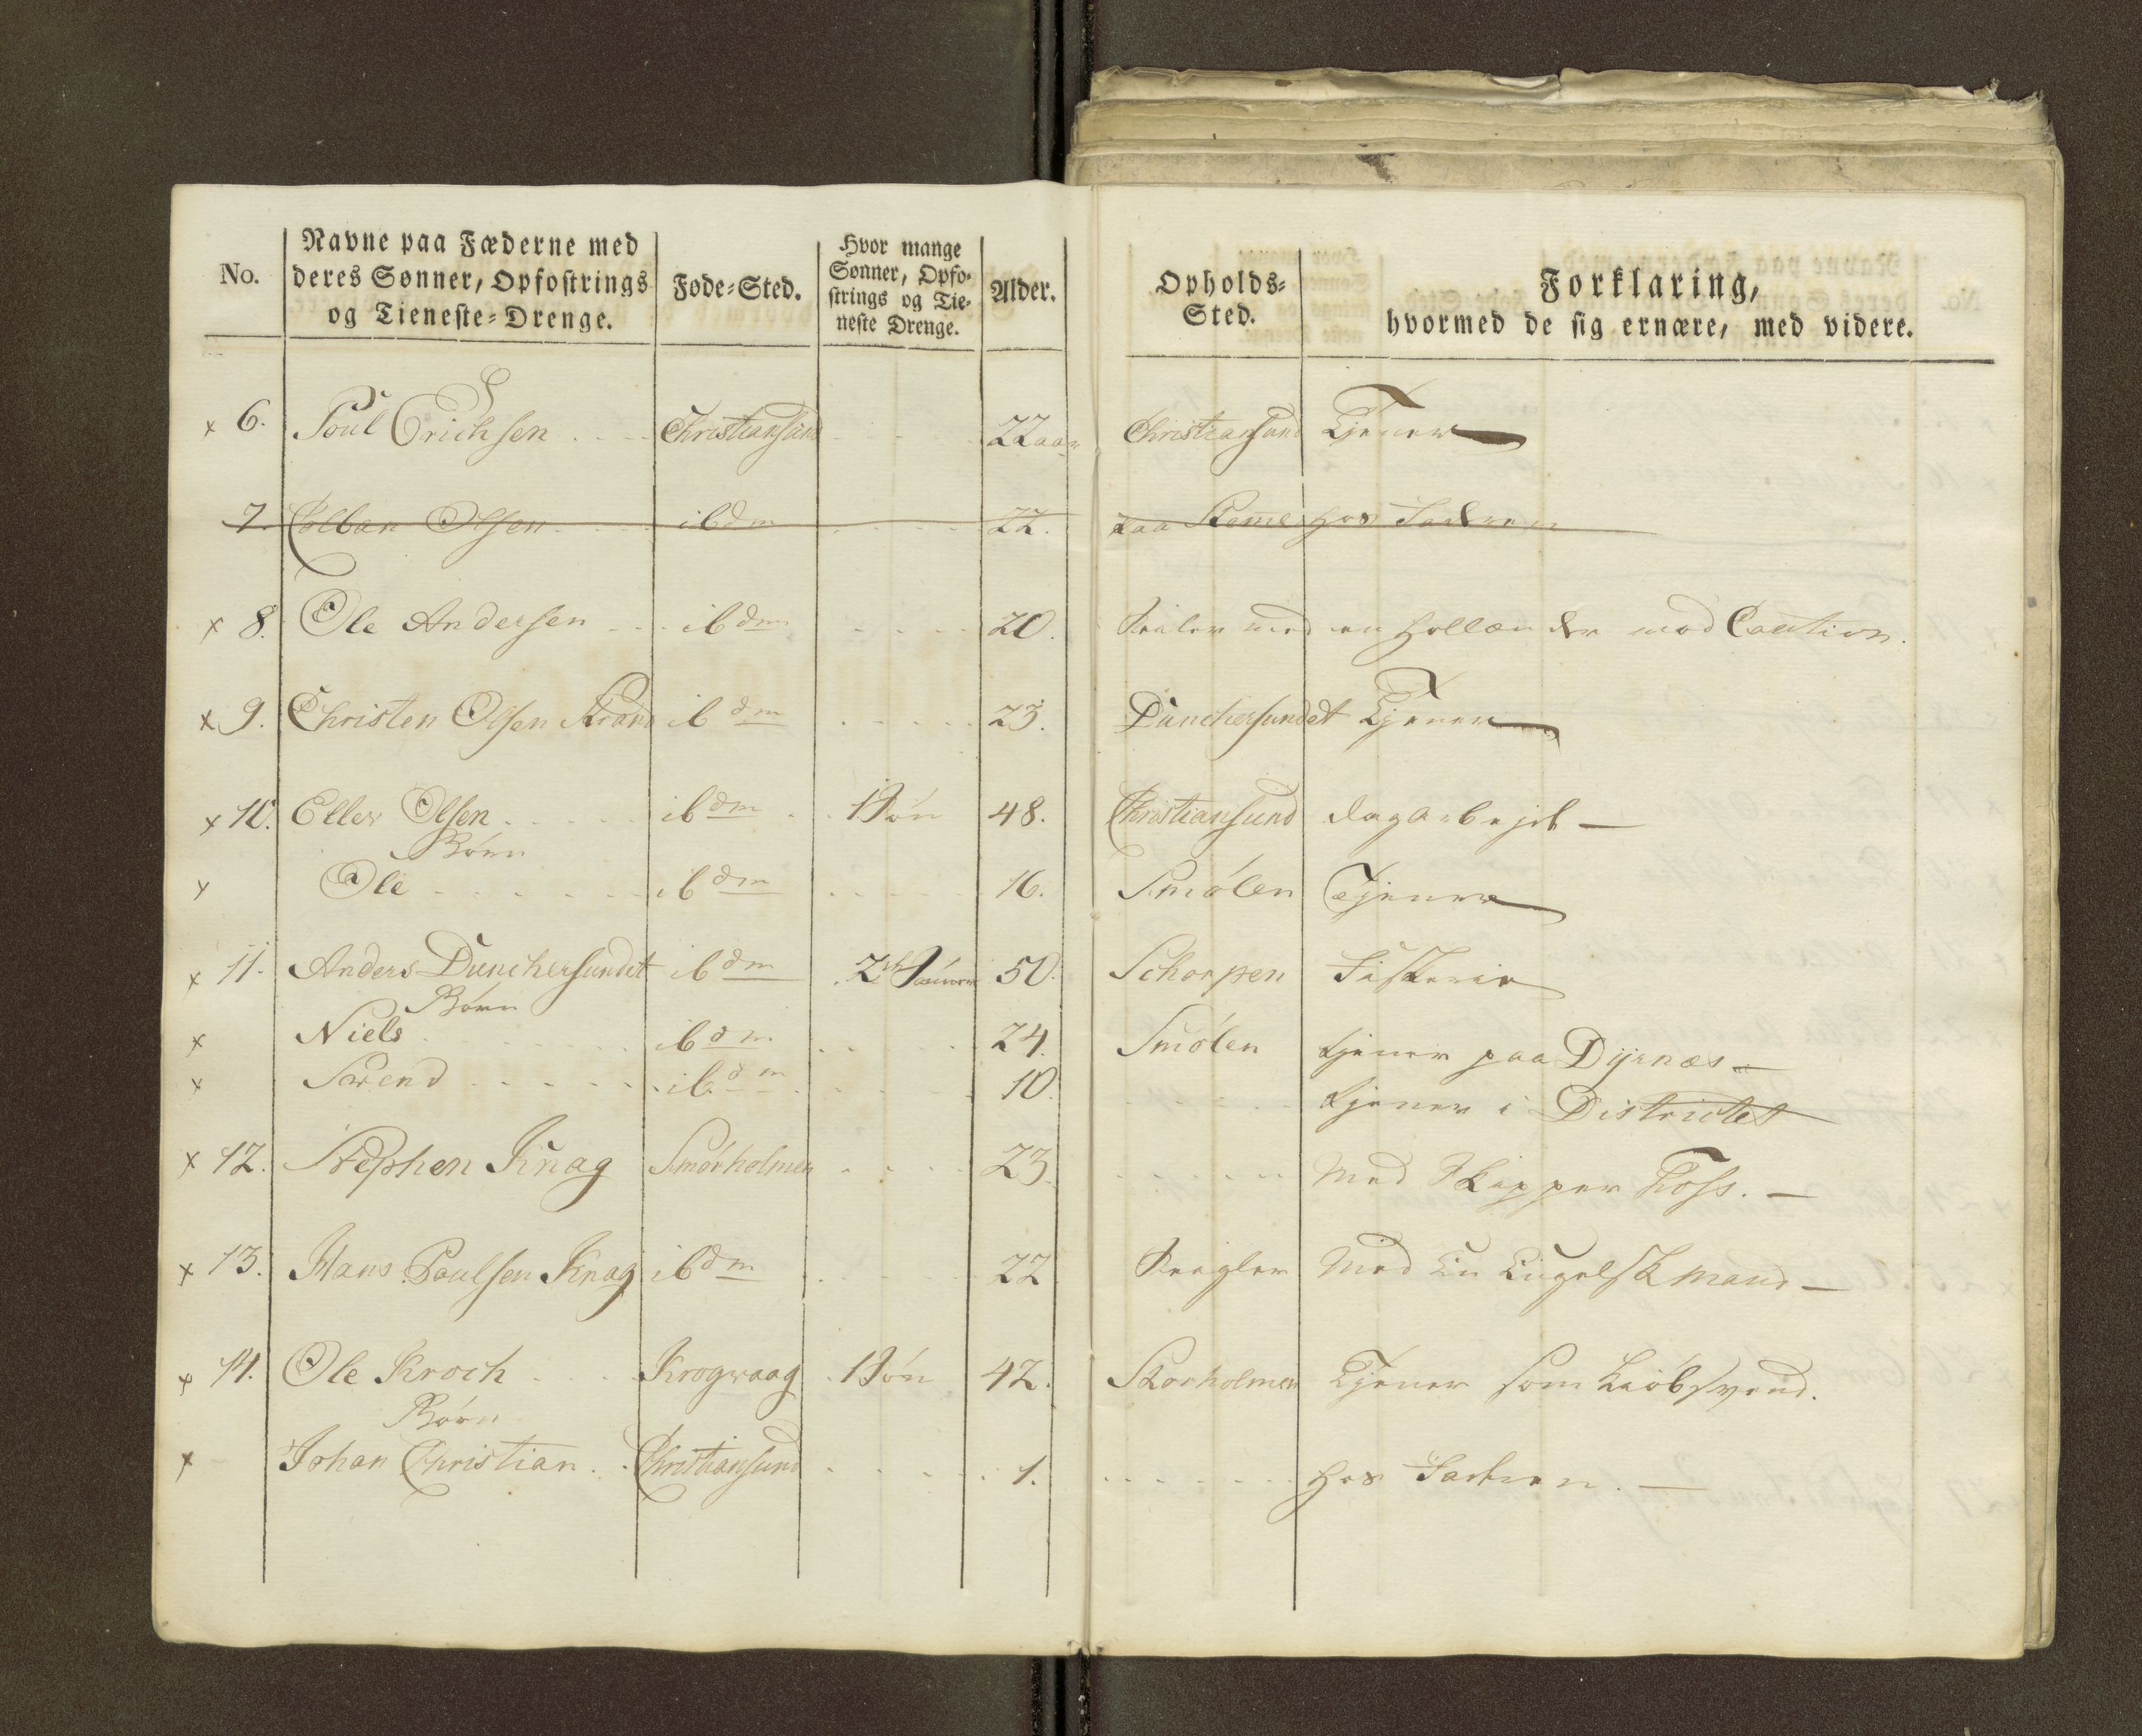 No. Navne paa Fæderne med deres Sønner, Opfostrings og Tieneste-Drenge. Føde-Sted. Hvor mange Sønner, Opfostrings og Tieneste Drenge. Alder. Opholds-Sted. Forklaring, hvormed de sig ernære, med videre.
x 6. Poul Erichsen Christiansund 22 aar Christiansund Tjener
7. Colban Olsen ibdm 22. paa Rame hos Faderen
x 8. Ole Andersen ibdm 20. Seiler med en Hollænder mod Caution.
x 9. Christen Olsen Strand ibdm 23. Dunchersundet Tjener
x 10. Eller Olsen ibdm 1 Søn 48. Christiansund dagarbejd
Børn
x Ole ibdm 16. Smølen Tjener
x 11. Anders Dunchersundet ibdm 2 50. Schorpen Fiskerie
Børn
x Niels ibdm 24. Smølen tjener paa Dyrnæs
x Svend ibdm 10. tjener i Districtet
x 12. Stephen Knag Smörholmen 23. Med Skipper Foss.
x 13. Hans Paulsen Knag ibdm 22 Seigler Med En Engelsk mand
x 14. Ole Kroch Krogvaag 1 Søn 42. Skorholmen Tjener som Kiøbsvend.
Børn
x Johan Christian Christiansund 1. hos Faderen.